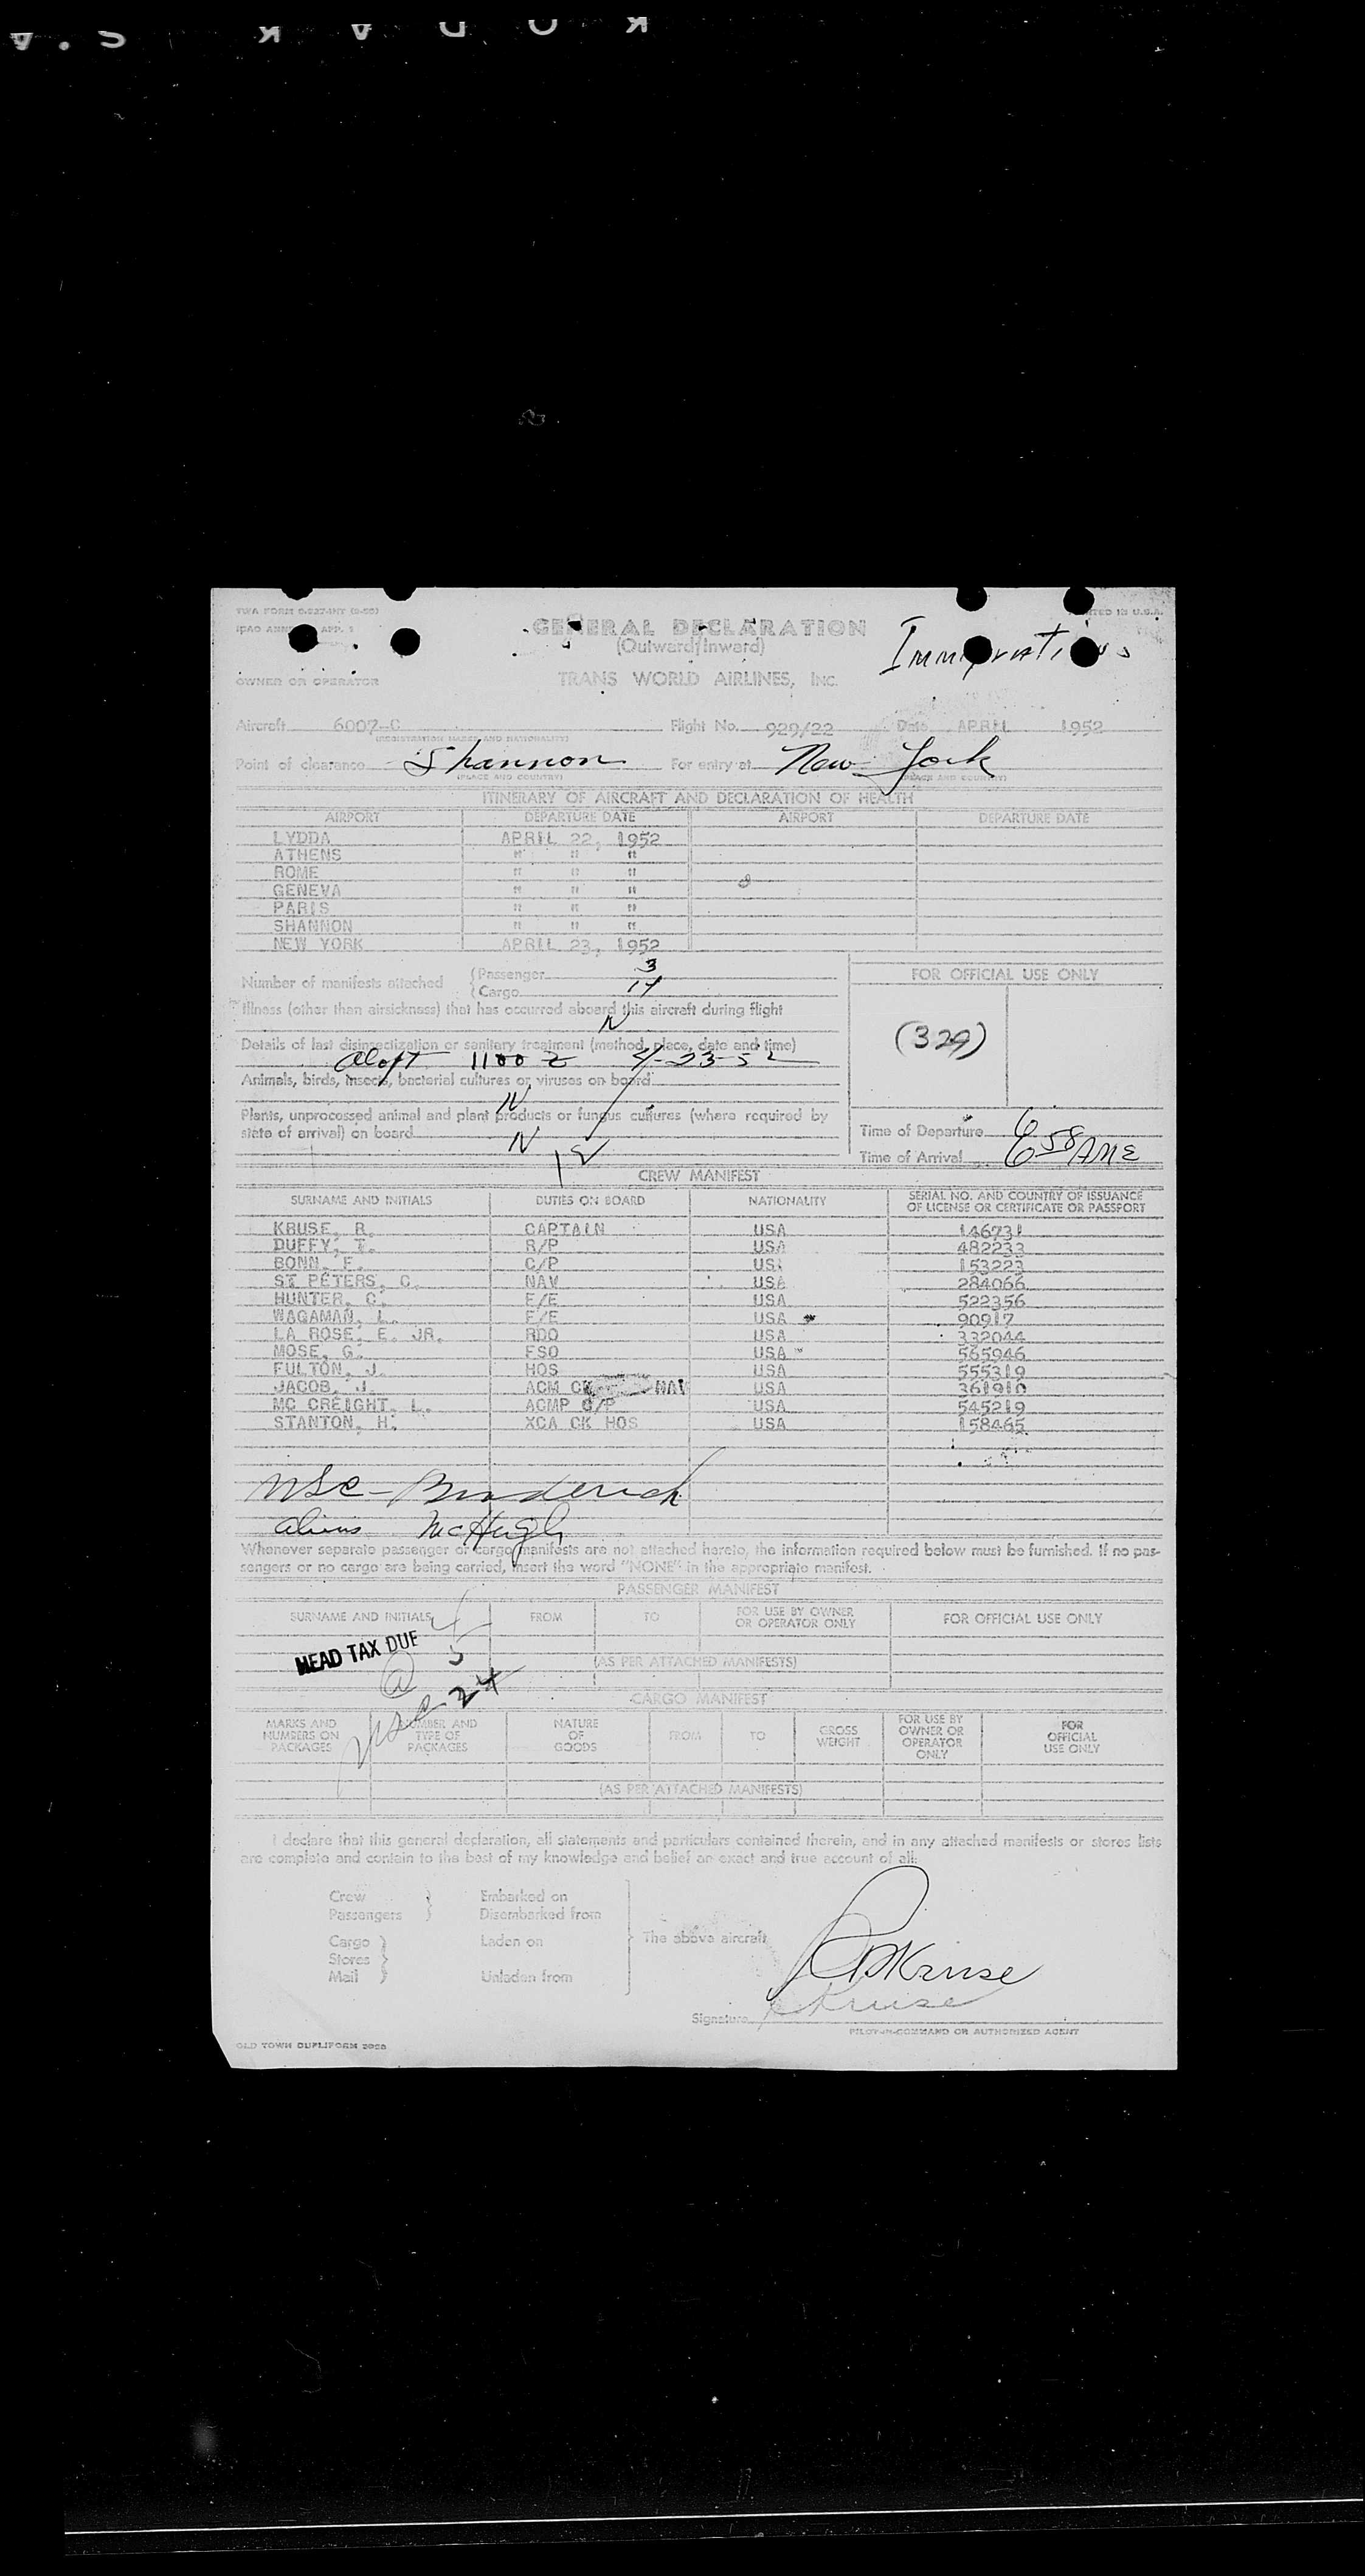 TWA FORM
GENERAL DECLARATION
(Outward/Inward)
TRANS WORLD AIRLINES, INC.
OWNER OR OPERATOR
Aircraft 6007-C Flight No. 929/22 Date APRIL 1952
(REGISTRATION MARKS AND NATIONALITY)
Point of clearance Shannon For entry at New York
(PLACE AND COUNTRY) (PLACE AND COUNTRY)
ITINERARY OF AIRCRAFT AND DECLARATION OF HEALTH
AIRPORT DEPARTURE DATE AIRPORT DEPARTURE DATE
LYDDA APRIL 22, 1952
ATHENS " " "
ROME " " "
GENEVA " " "
PARIS " " "
SHANNON " " "
NEW YORK APRIL 23, 1952
Number of manifests attached (Passenger 3
(Cargo 14
FOR OFFICIAL USE ONLY
(329)
Illness (other than airsickness) that has occurred aboard this aircraft during flight
N
Details of last disinsectization or sanitary treatment (method, place, date and time)
Aloft 1100 Z 4-23-52
Animals, birds, insects, bacterial cultures or viruses on board
N
Plants, unprocessed animal and plant products or fungus cultures (where required by
state of arrival) on board N
Time of Departure
Time of Arrival 6 58 AME
CREW MANIFEST
SURNAME AND INITIALS DUTIES ON BOARD NATIONALITY SERIAL NO. AND COUNTRY OF ISSUANCE OF LICENSE OR CERTIFICATE OR PASSPORT
KRUSE, R. CAPTAIN USA 146731
DUFFY, T. R/P USA 482233
BONN, F. C/P USA 153223
ST PETERS, C. NAV USA 284066
HUNTER, C. F/E USA 522356
WAGAMAN, L. F/E USA 90917
LA ROSE, E. JR. RDO USA 332044
MOSE, G. FSO USA 565946
FULTON, J. HOS USA 555319
JACOB, J. ACM CK NAV USA 361910
MC CREIGHT, L. ACMP C/P USA 545219
STANTON, H. XCA CK HOS USA 158465
USC - Broderick
Aliens McHugh
Whenever separate passenger or cargo manifests are not attached hereto, the information required below must be furnished. If no pas-
sengers or no cargo are being carried, insert the word "NONE" in the appropriate manifest.
PASSENGER MANIFEST
SURNAME AND INITIALS FROM TO FOR USE BY OWNER OR OPERATOR ONLY FOR OFFICIAL USE ONLY
HEAD TAX DUE 4
5
(AS PER ATTACHED MANIFESTS)
USC 24
CARGO MANIFEST
MARKS AND NUMBERS ON PACKAGES NUMBER AND TYPE OF PACKAGES NATURE OF GOODS FROM TO GROSS WEIGHT FOR USE BY OWNER OR OPERATOR ONLY FOR OFFICIAL USE ONLY
(AS PER ATTACHED MANIFESTS)
I declare that this general declaration, all statements and particulars contained therein, and in any attached manifests or stores lists
are complete and contain to the best of my knowledge and belief an exact and true account of all:
Crew Embarked on
Passengers Disembarked from
Cargo Laden on The above aircraft
Stores
Mail Unladen from
RKruse
Signature RKruse
PILOT-IN-COMMAND OR AUTHORIZED AGENT
OLD TOWN DUPLIFORM